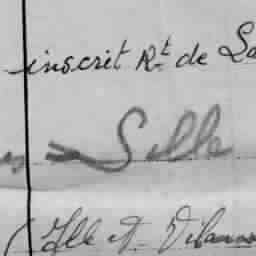 inscrit Rt de
Selle
Ille et Vilaine